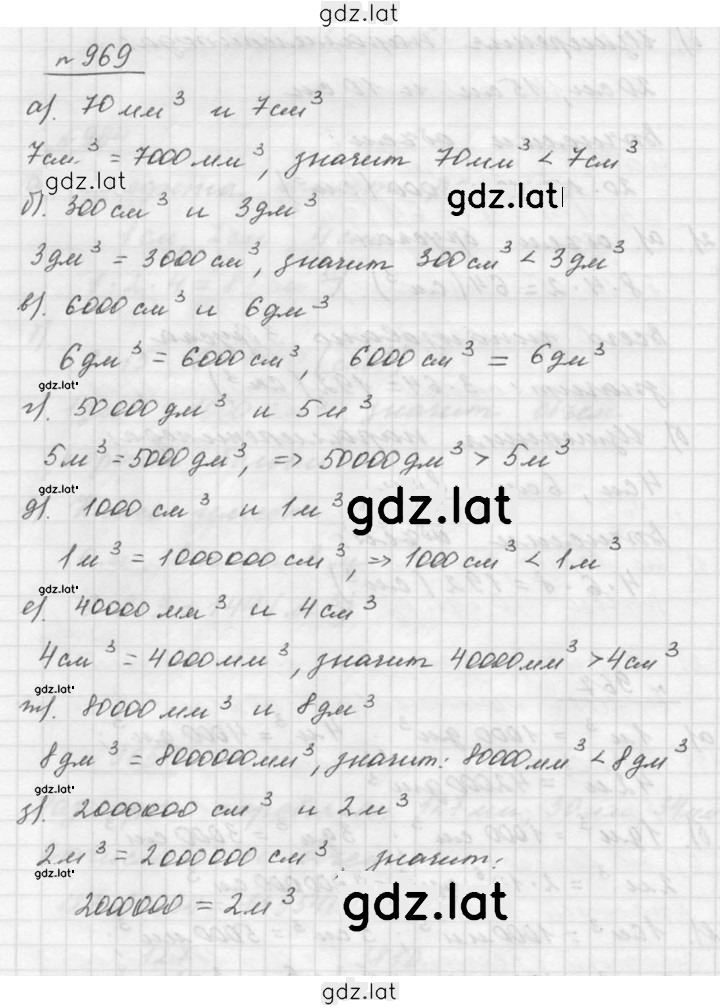 gdz.lat
№ 969
а). 70 мм³ и 7см³
7см³ = 7000 мм³, значит 70мм³ < 7см³
gdz.lat
gdz.lat
б). 300 см³ и 3дм³
3дм³ = 3000 см³, значит 300 см³ < 3дм³
в). 6000 см³ и 6дм³
6дм³ = 6000 см³, 6000 см³ = 6дм³
gdz.lat
г). 50000 дм³ и 5м³
5м³ = 5000 дм³, => 50000 дм³ > 5м³
gdz.lat
д). 1000 см³ и 1м³
gdz.lat
1м³ = 1000000 см³, => 1000 см³ < 1м³
е). 40000 мм³ и 4см³
4см³ = 4000 мм³, значит 40000 мм³ > 4см³
gdz.lat
ж). 80000 мм³ и 8дм³
8дм³ = 8000000 мм³, значит: 80000 мм³ < 8дм³
gdz.lat
з). 2000000 см³ и 2м³
2м³ = 2000000 см³, значит:
gdz.lat
2000000 = 2м³
gdz.lat
gdz.lat